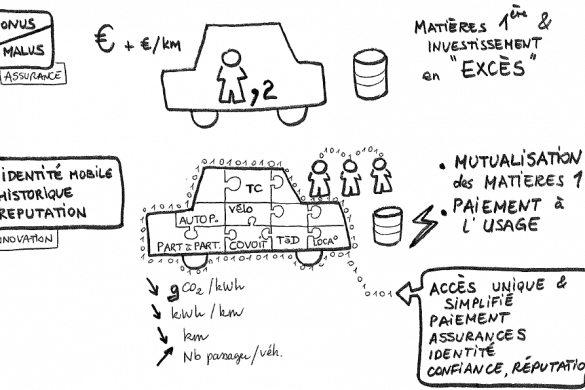 ONUS
MALUS
ASSURANCE
€ + €/km
,2
MATIÈRES 1ère &
INVESTISSEMENT
en "EXCÈS"
IDENTITÉ MOBILE
HISTORIQUE
REPUTATION
NOVATION
0101010101010
TC
VÉLO
AUTOP.
PART à PART.
COVOIT
TàD
LOCAº
• MUTUALISATION
des MATIERES 1
• PAIEMENT à
L'USAGE
↘ gCO2/kWh
↘ kWh/km
↘ km
↗ Nb passager/véh.
0101
ACCÈS UNIQUE &
SIMPLIFIÉ
PAIEMENT
ASSURANCES
IDENTITÉ
CONFIANCE, RÉPUTATIO